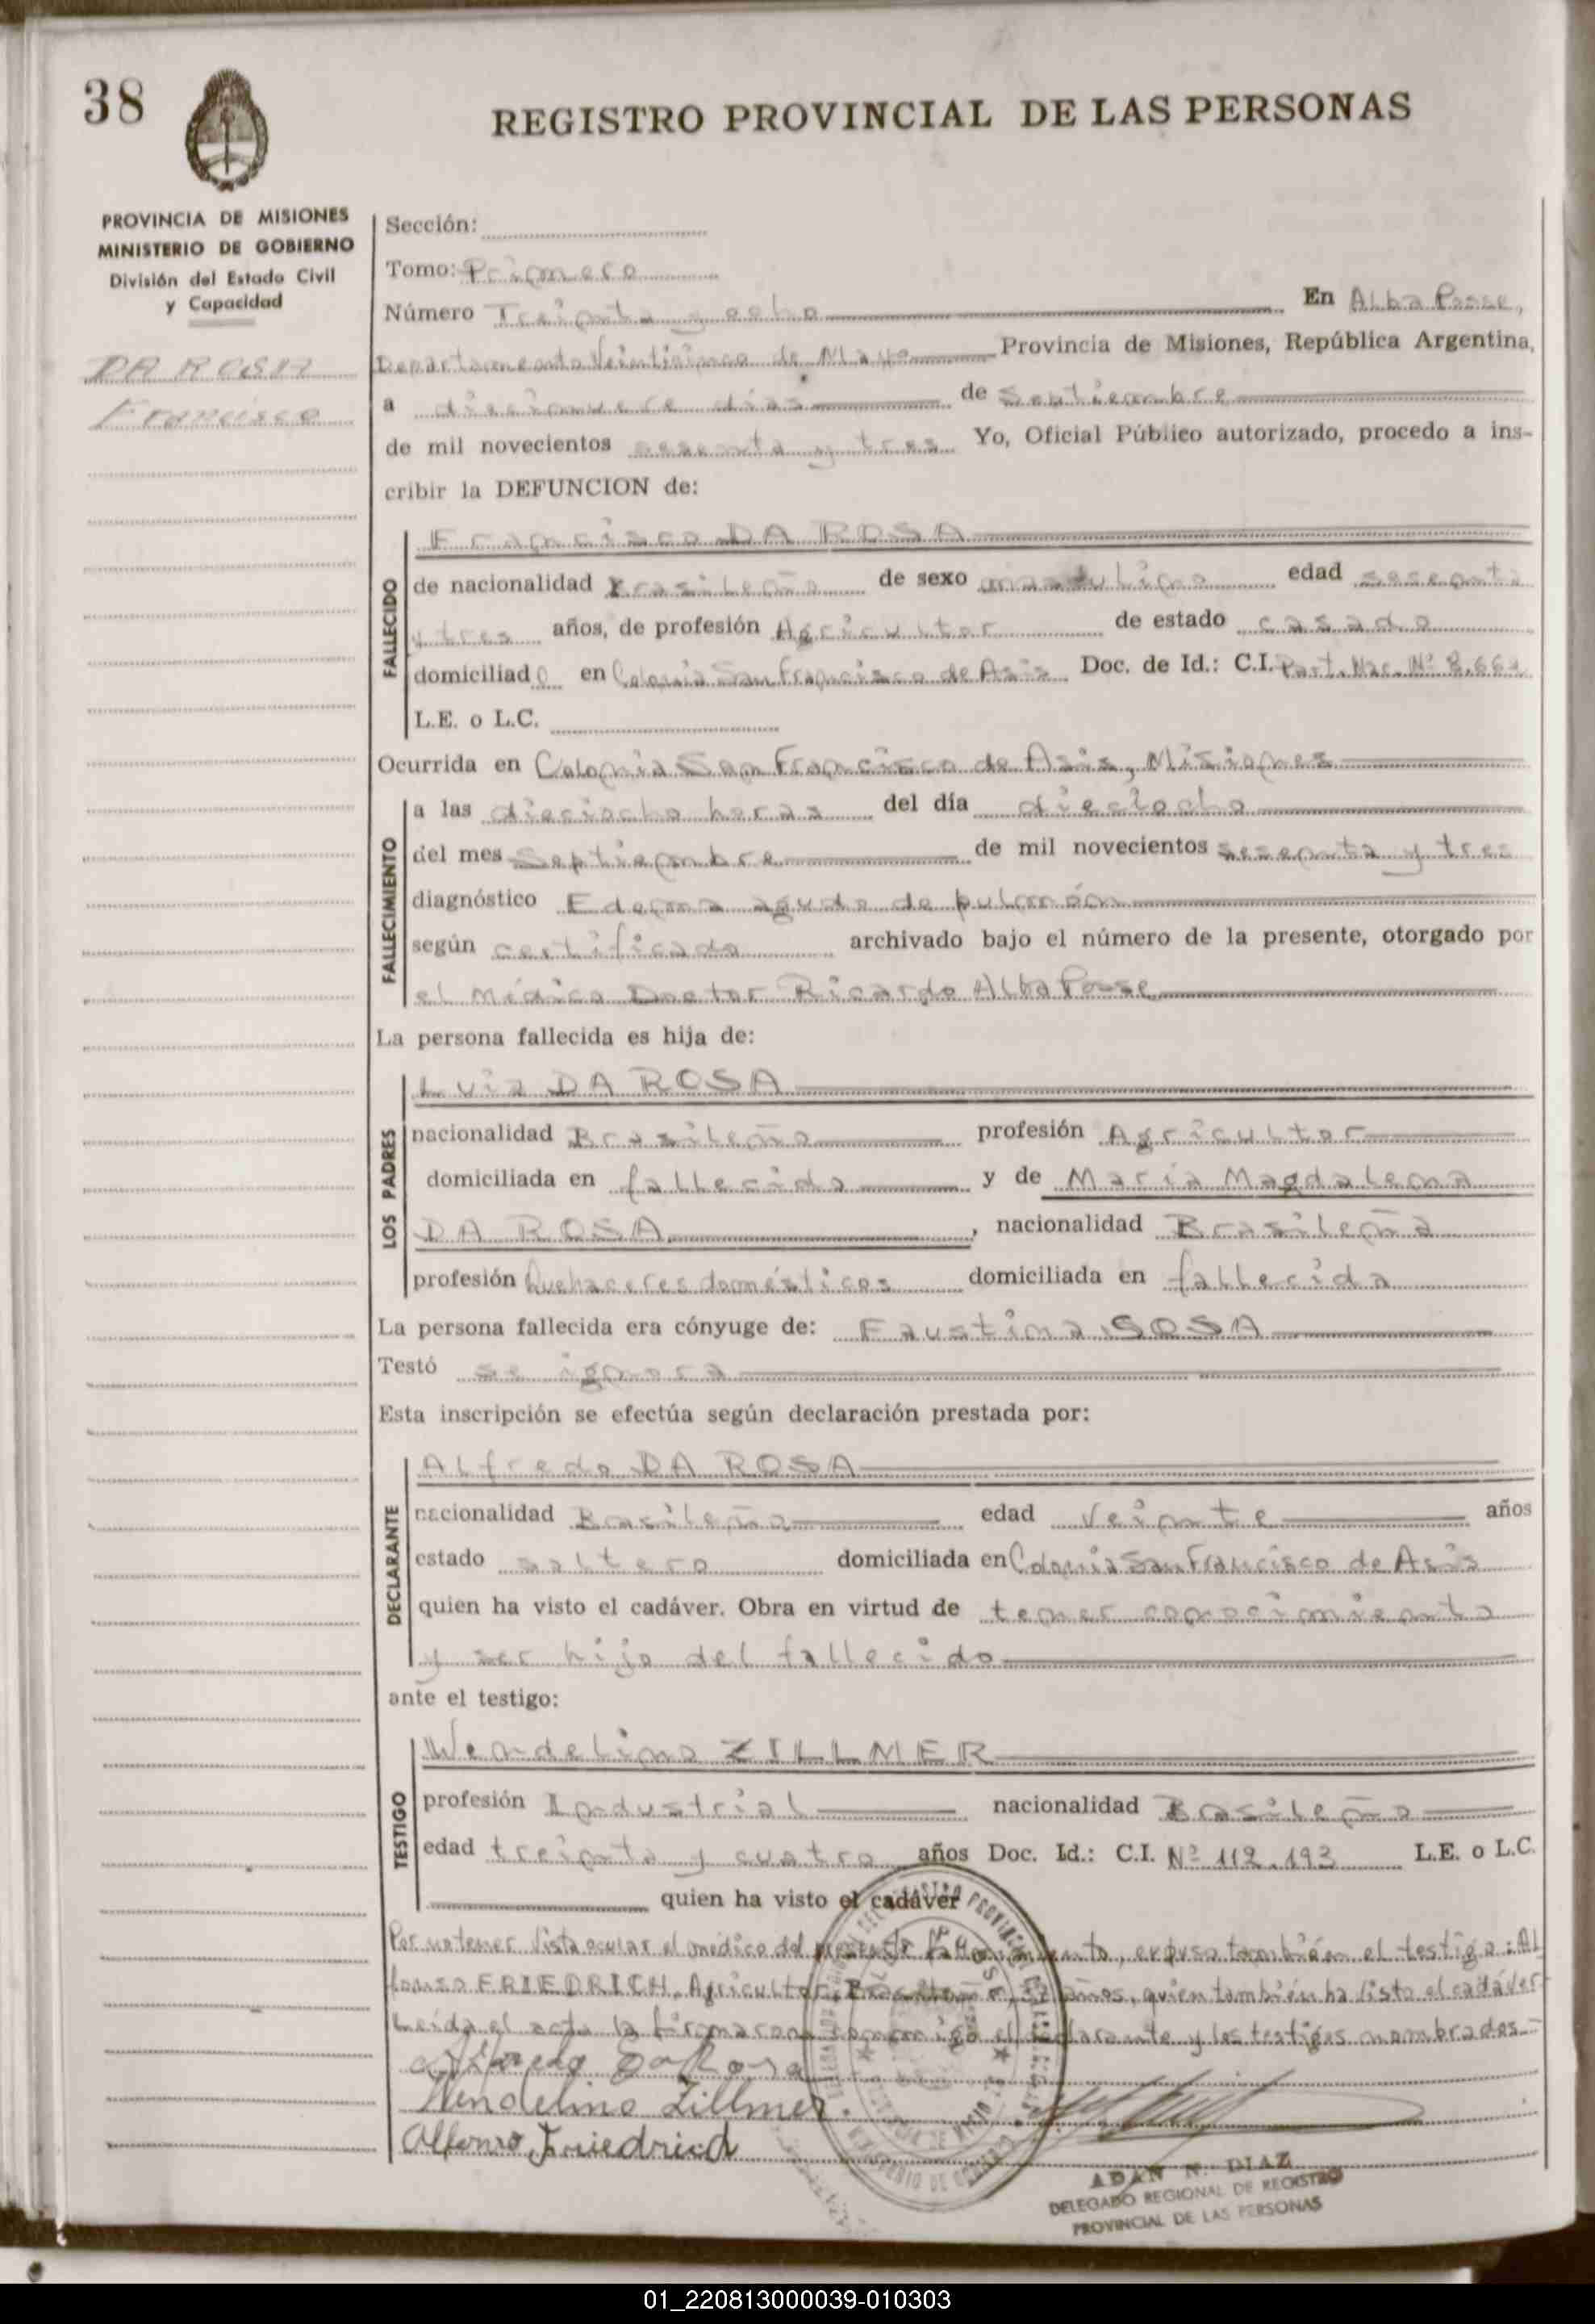 38
REGISTRO PROVINCIAL DE LAS PERSONAS
PROVINCIA DE MISIONES
MINISTERIO DE GOBIERNO
División del Estado Civil
y Capacidad
DA ROSA
Francisco
Sección:
Tomo: Primero
Número Treinta y ocho En Alba Posse,
Departamento Veinticinco de Mayo Provincia de Misiones, República Argentina,
a diecinueve días de Septiembre
de mil novecientos sesenta y tres Yo, Oficial Público autorizado, procedo a ins-
cribir la DEFUNCION de:
FALLECIDO
Francisco DA ROSA
de nacionalidad Brasileño de sexo masculino edad sesenta
y tres años, de profesión Agricultor de estado casado
domiciliado en Colonia San Francisco de Asis Doc. de Id.: C.I. Part. Nac. Nº 8.661
L.E. o L.C.
Ocurrida en Colonia San Francisco de Asis, Misiones
FALLECIMIENTO
a las dieciocho horas del día dieciocho
del mes Septiembre de mil novecientos sesenta y tres
diagnóstico Edema agudo de pulmón
según certificado archivado bajo el número de la presente, otorgado por
el Médico Doctor Ricardo Alba Posse
La persona fallecida es hija de:
LOS PADRES
Luiz DA ROSA
nacionalidad Brasileño profesión Agricultor
domiciliada en fallecido y de María Magdalena
DA ROSA, nacionalidad Brasileña
profesión Quehaceres domésticos domiciliada en fallecida
La persona fallecida era cónyuge de: Faustina SOSA
Testó se ignora
Esta inscripción se efectúa según declaración prestada por:
DECLARANTE
Alfredo DA ROSA
nacionalidad Brasileño edad veinte años
estado soltero domiciliada en Colonia San Francisco de Asis
quien ha visto el cadáver. Obra en virtud de tener conocimiento
y ser hijo del fallecido
ante el testigo:
TESTIGO
Wendelino ZILLMER
profesión Industrial nacionalidad Brasileño
edad treinta y cuatro años Doc. Id.: C.I. Nº 112.193 L.E. o L.C.
quien ha visto el cadáver
Por no tener vista ocular el médico del presente fallecimiento, expuso también el testigo: Al
fonso FRIEDRICH, Agricultor, años, quien también ha visto el cadáver
Leída el acta la firmaron conmigo el declarante y los testigos nombrados.
Alfredo Da Rosa
Wendelino Zillmer.
Alfonso Friedrich
ADAN N. DIAZ
DELEGADO REGIONAL DE REGISTRO
PROVINCIAL DE LAS PERSONAS
01_220813000039-010303